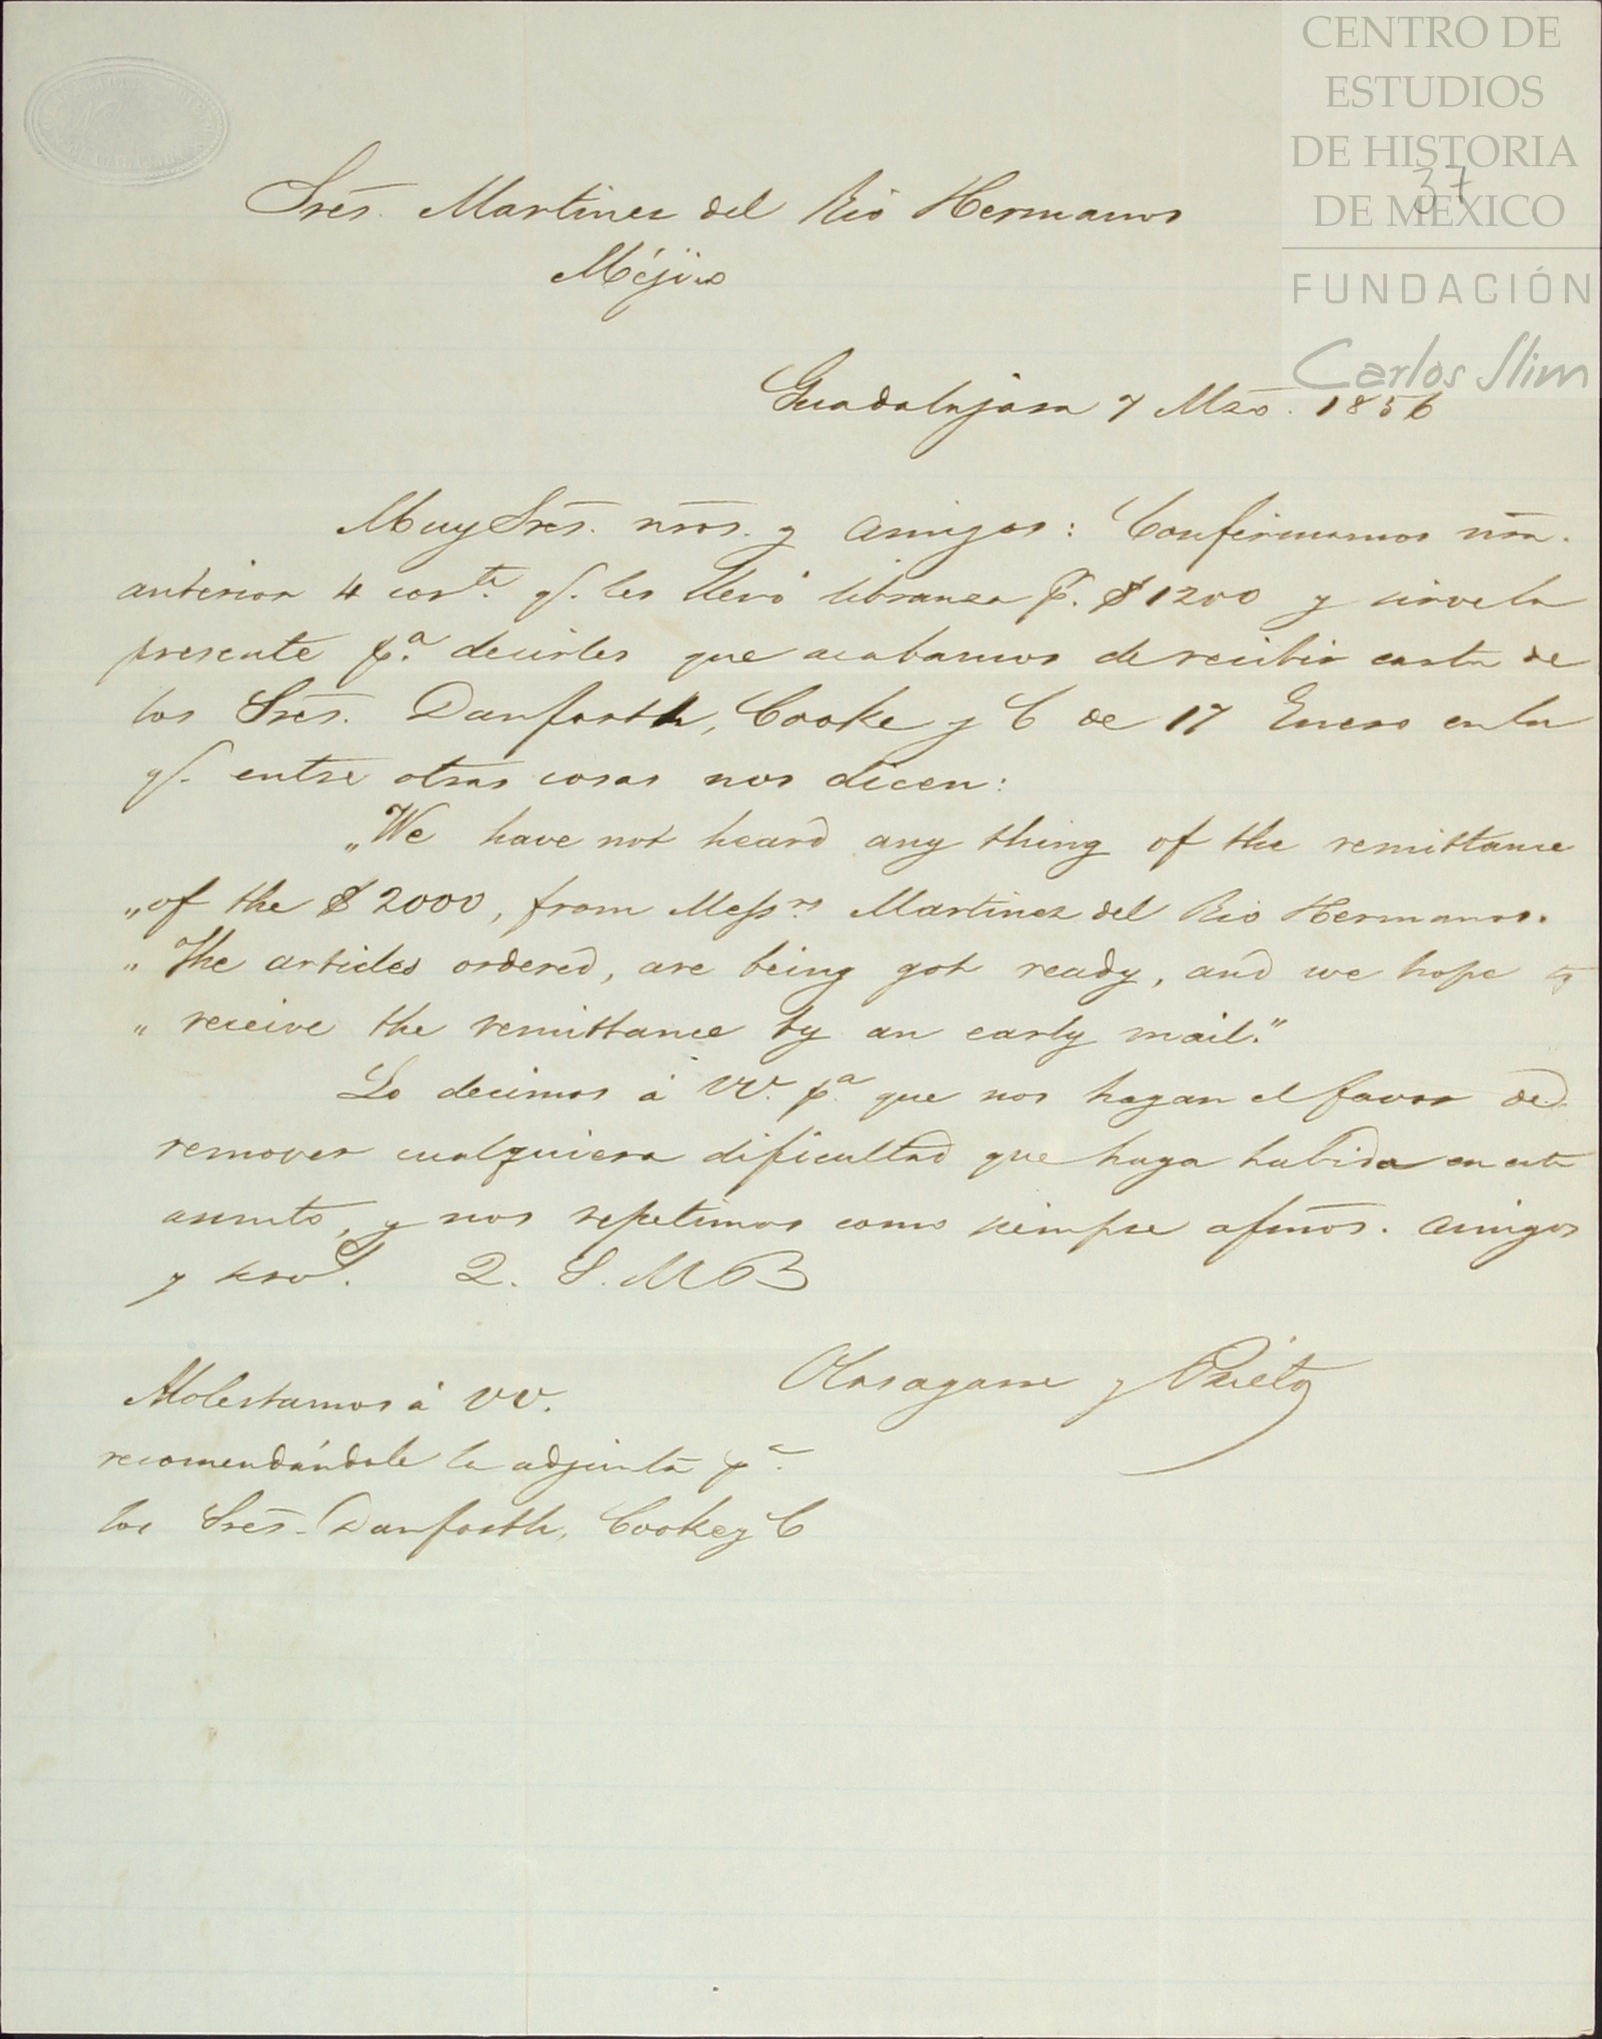 CENTRO DE
ESTUDIOS
DE HISTORIA
DE MEXICO
37
FUNDACIÓN
Carlos Slim
Srēs. Martinez del Rio Hermanos
Méjico
Guadalajara 7 Mzo. 1856
Muy Srēs. nrōs. y amigos: Confirmamos nrā.
anterior 4 corte. q. les llevó libranza p. $1200 y sirve la
presente pa. decirles que acabamos de recibir carta de
los Srēs. Danforth, Cooke y C de 17 Enero en la
q. entre otras cosas nos dicen:
„We have not heard any thing of the remittance
„of the $2000, from Messrs. Martinez del Rio Hermanos.
„The articles ordered, are being got ready, and we hope to
„receive the remittance by an early mail."
Lo decimos á VV. pa. que nos hagan el favor de
remover cualquiera dificultad que haya habido en este
asunto, y nos repetimos como siempre afmōs. amigos
y Q. S. M B
Olasagarre y Prieto
Molestamos á VV.
recomendándole la adjunta pa.
los Srēs. Danforth, Cooke y C